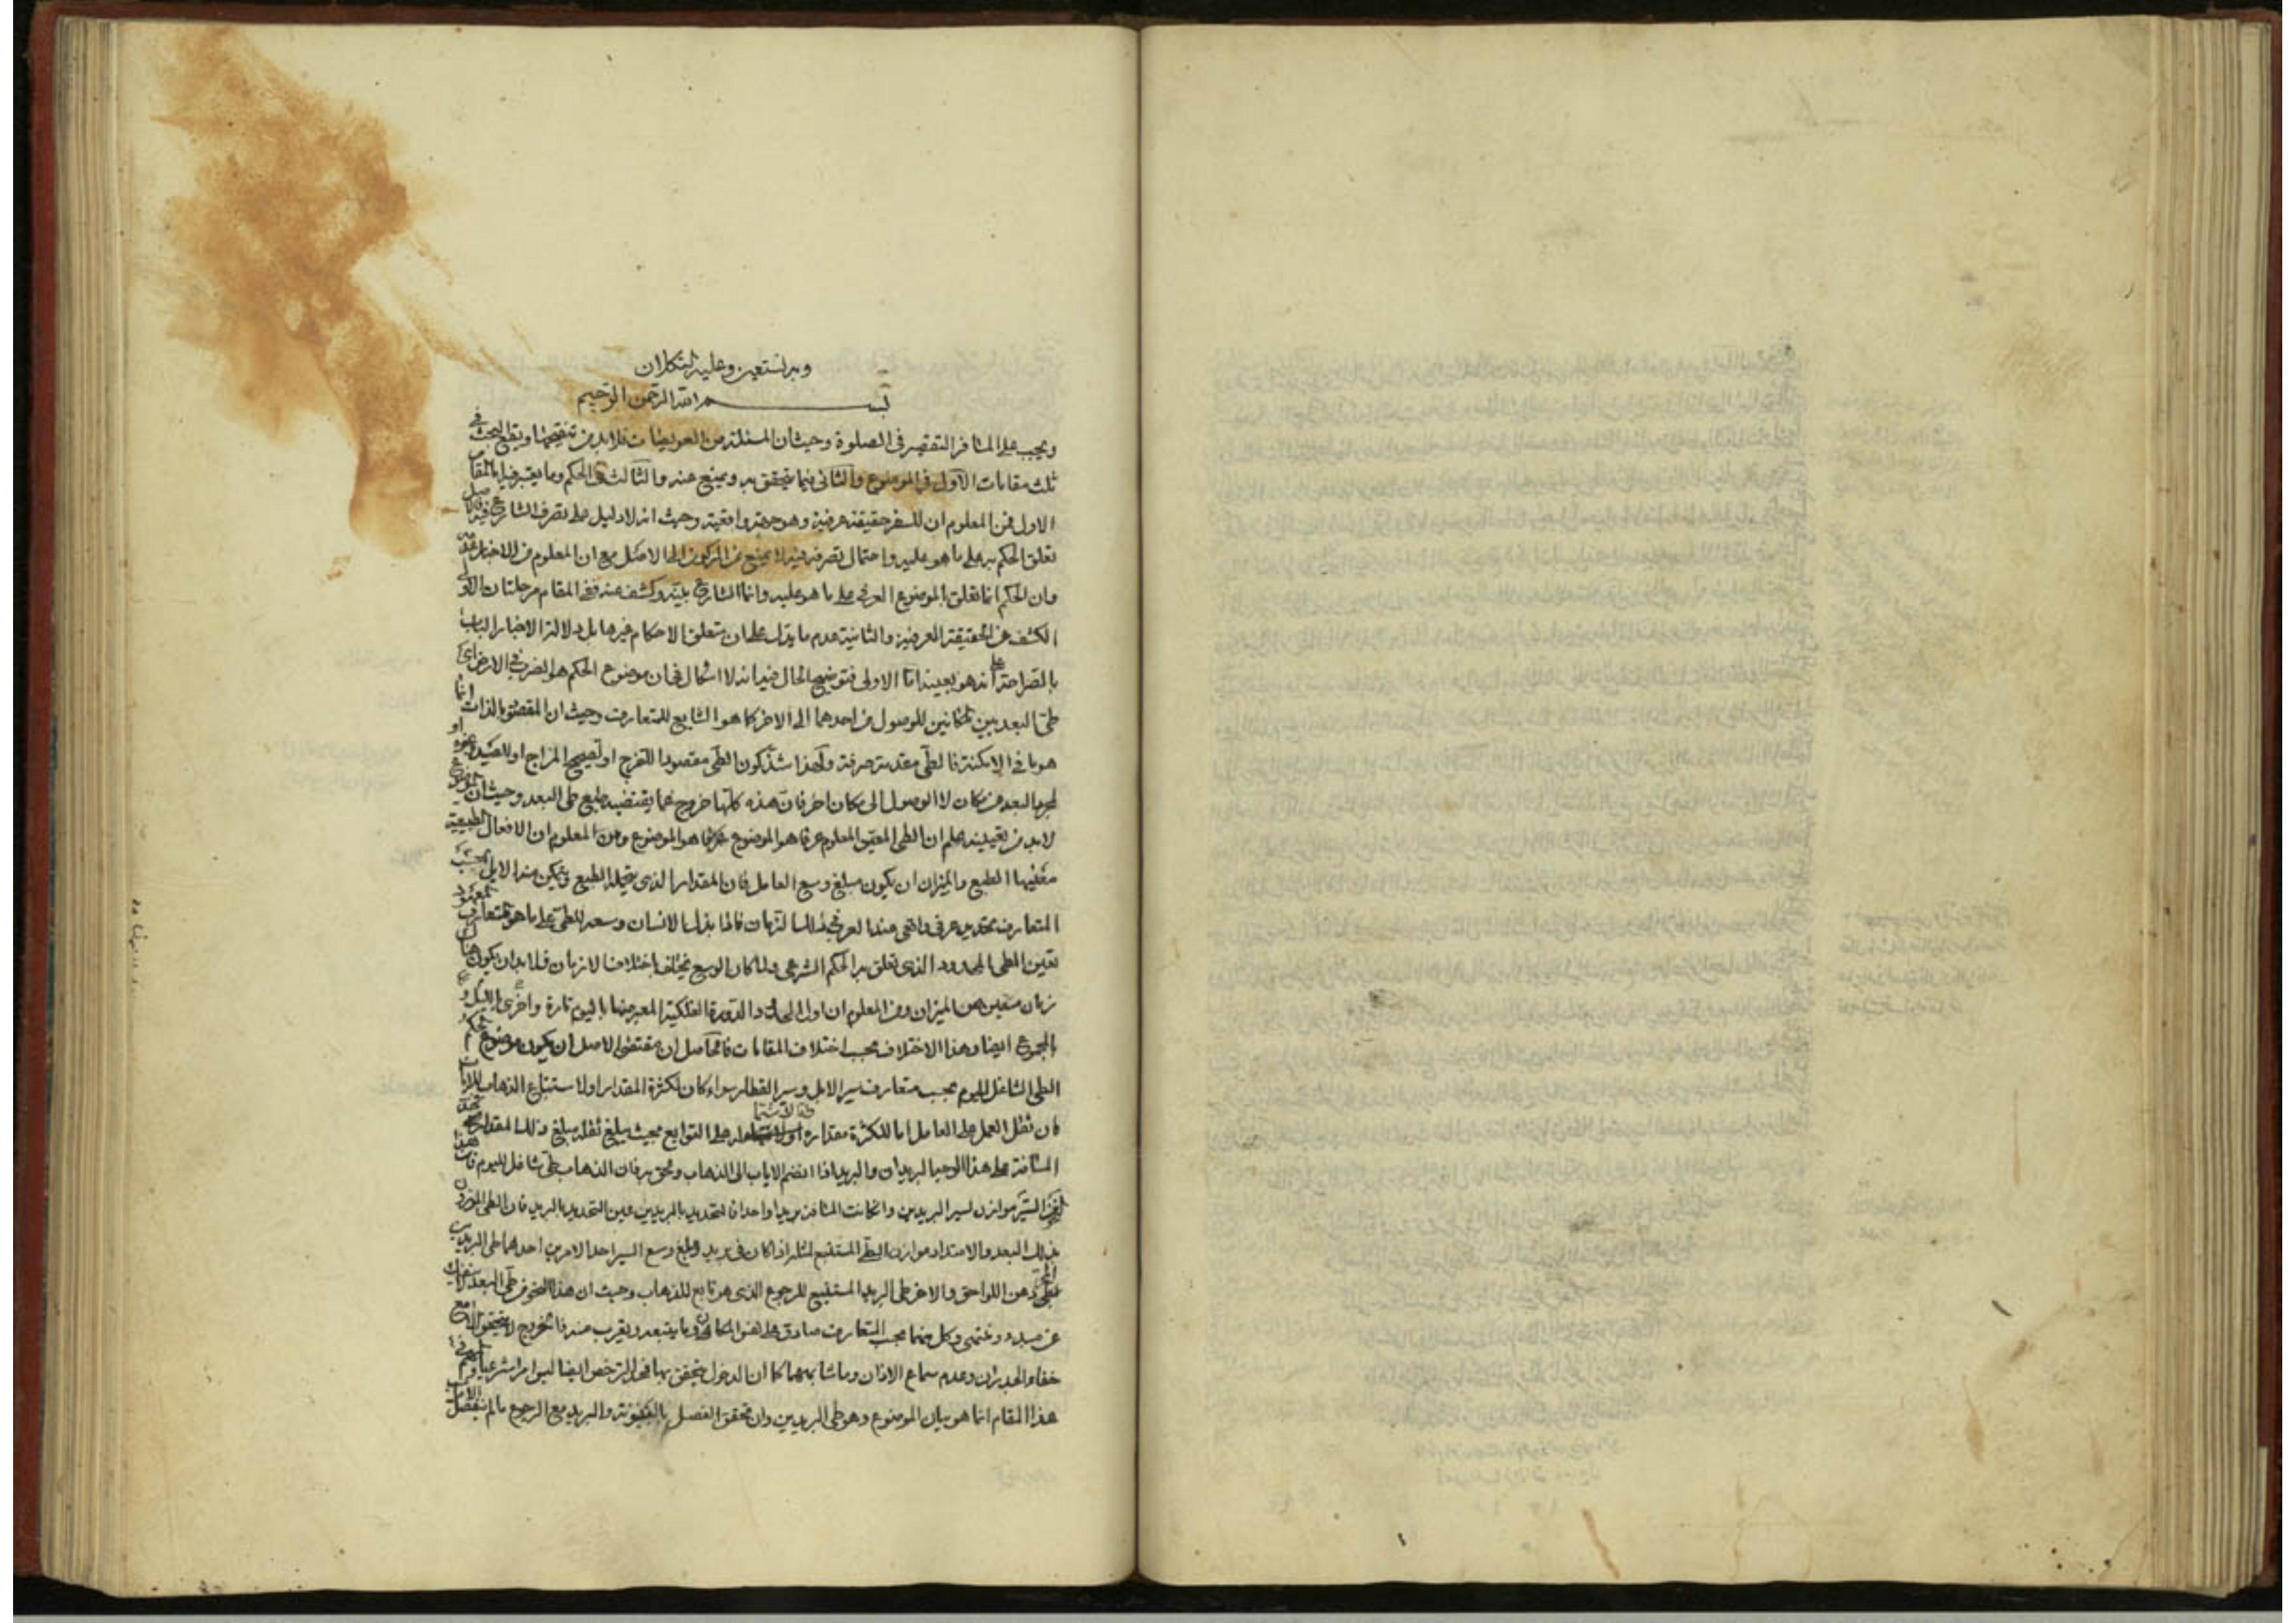 وبه نستعين وعليه التكلان
بسم الله الرحمن الرحيم
ويجب على المسافر التقصير فى الصلوة وحيث ان المسئلة من العويصات فلا بد من تنقيحها ويقع البحث فى
ثلث مقامات الاول فى الموضوع والثانى فيما يتحقق به ويمنع عنه والثالث فى الحكم وما يعتبر فيه اما المقام
الاول فمن المعلوم ان للسفر حقيقة عرفية وهو جهة واقعية وحيث انه لا دليل على تصرف الشارع فيه فالاصل
تعلق الحكم به على ما هو عليه واحتمال تصرفه فيه لا يمنع من الركون الى الاصل مع ان المعلوم من الاخبار عدمه
وان الحكم انما تعلق بالموضوع العرفى على ما هو عليه وانما الشارع بينه وكشف عنه ففى المقام مرحلتان الاولى
الكشف عن الحقيقة العرفية والثانية عدم ما يدل على ان متعلق الاحكام غيرها بل دلالة الاخبار الباب
بالصراحة على انه هو بعينه اما الاولى فتوضيح الحال فيه انه لا اشكال فى ان موضوع الحكم هو الضرب فى الارض اى
طى البعد بين المكانين للوصول من احدهما الى الاخر كما هو الشايع المتعارف وحيث ان المقصود بالذات انما
هو ما فى الامكنة فالطى مقدمة صرفة ولهذا شذ كون الطى مقصودا للتفرج او تصحيح المزاج او للصيد او غيره
لمجرد البعد من مكان لا الوصول الى مكان اخر فان هذه كلها خروج عما يقتضيه طبع طى البعد وحيث ان الموضوع
لا بد من تعيينه علم ان الطى المعين المعلوم عرفا هو الموضوع ومن المعلوم ان الافعال الطبيعية
معينها الطبع والميزان ان يكون مبلغ وسع العامل فان المقدار الذى يتحمله الطبع ويتمكن منه الابل بحسب
المتعارف تحديد عرفى واقعى عند العرف فى المسافات فاذا بذل الانسان وسعه للطى على ما هو المتعارف المعهود
تعين الطى المحدود الذى تعلق به الحكم الشرعى ولما كان الوسع يختلف باختلاف الازمان فلا بد ان يكون هناك
زمان متعين هو الميزان ومن المعلوم ان اول الحدود الدورة الفلكية المعبر عنها باليوم تارة واخرى بالليل و
بالمجموع ايضا وهذا الاختلاف بحسب اختلاف المقامات فالحاصل ان مقتضى الاصل ان يكون موضوع الحكم
الطى الشاغل لليوم بحسب متعارف سير الابل وسير القطار سواء كان لكثرة المقدار او لاستتباع الذهاب للاياب
فان ثقل العمل على العامل اما لكثرة مقداره او على التوابع بحيث يبلغ ثقله مبلغ ذلك المقدار فحد
المسافة على هذا الوجه البريدان والبريد اذا انضم الاياب الى الذهاب ولحق به فان الذهاب طى شاغل لليوم فان هذا
السير موازن لسير البريدين وان كانت المسافة بريدا واحدا فالتحديد بالبريدين عين التحديد بالبريد فان الطى الموزون
بذلك البعد والامتداد موازن الطى المستتبع لمثله اذا كان فى بريد ومبلغ وسع السير احد الامرين احدهما طى البريدين
المجرد عن اللواحق والاخر طى البريد المستتبع للرجوع الذى هو تابع للذهاب وحيث ان هذا النحو من طى البعد لا ينفك
عن مبدء ومنتهى وكل منهما بحسب المتعارف صادق على نفس المكان وما يتبعه ويقرب منه فالخروج لا يتحقق الا مع
خفاء الجدران وعدم سماع الاذان وما شابههما كما ان الدخول يتحقق بهما فحد الترخص ايضا ليس امرا شرعيا
هذا المقام انما هو بيان الموضوع وهو طى البريدين وان تحقق الفصل بالبيتوتة والبريد مع الرجوع ما لم ينفصل